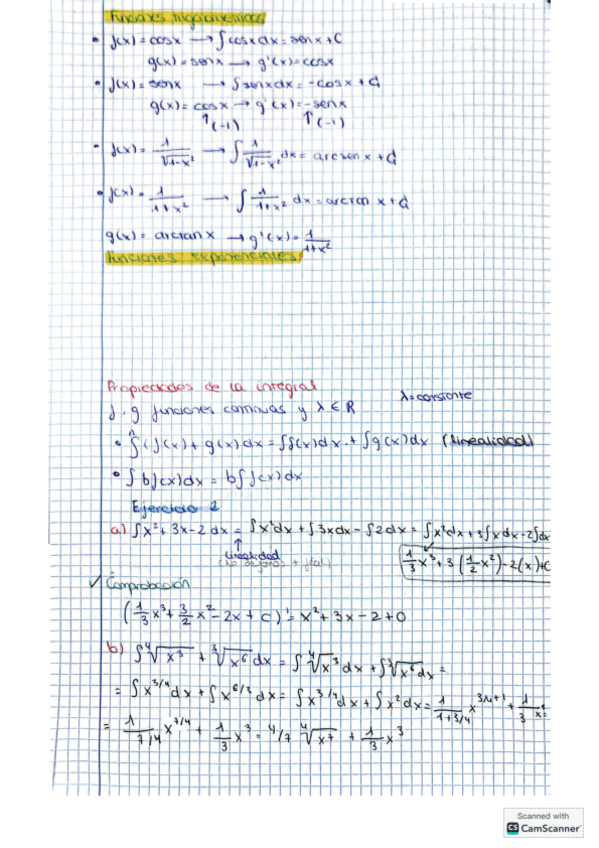 Funciones trigonométricas
• f(x) = cosx → ∫cosxdx = senx + C
g(x) = senx → g'(x) = cosx
• f(x) = senx → ∫senxdx = -cosx + C
g(x) = cosx → g'(x) = -senx
↑(-1) ↑(-1)
• f(x) = 1/√1-x² → ∫ 1/√1-x² dx = arcsen x + C
• f(x) = 1/1+x² → ∫ 1/1+x² dx = arctan x + C
g(x) = arctan x → g'(x) = 1/1+x²
Funciones exponenciales
Propiedades de la integral
λ = constante
f, g funciones continuas y λ ∈ R
• ∫(f(x) + g(x) dx = ∫f(x)dx + ∫g(x)dx (linealidad)
• ∫bf(x)dx = b∫f(x)dx
Ejercicio 2
a) ∫x² + 3x - 2 dx = ∫x²dx + ∫3xdx - ∫2dx = ∫x²dx + 3∫xdx - 2∫dx
↑ linealidad
1/3 x³ + 3 (1/2 x²) - 2(x) + C
✓ Comprobación
(1/3 x³ + 3/2 x² - 2x + C)' = x² + 3x - 2 + 0
b) ∫⁴√x³ + ³√x⁶ dx = ∫⁴√x³ dx + ∫³√x⁶ dx =
= ∫x^3/4 dx + ∫x^6/3 dx = ∫x^3/4 dx + ∫x² dx = 1/1+3/4 x^3/4+1 + 1/3
= 1/7/4 x^7/4 + 1/3 x³ = 4/7 ⁴√x⁷ + 1/3 x³
Scanned with
CS CamScanner